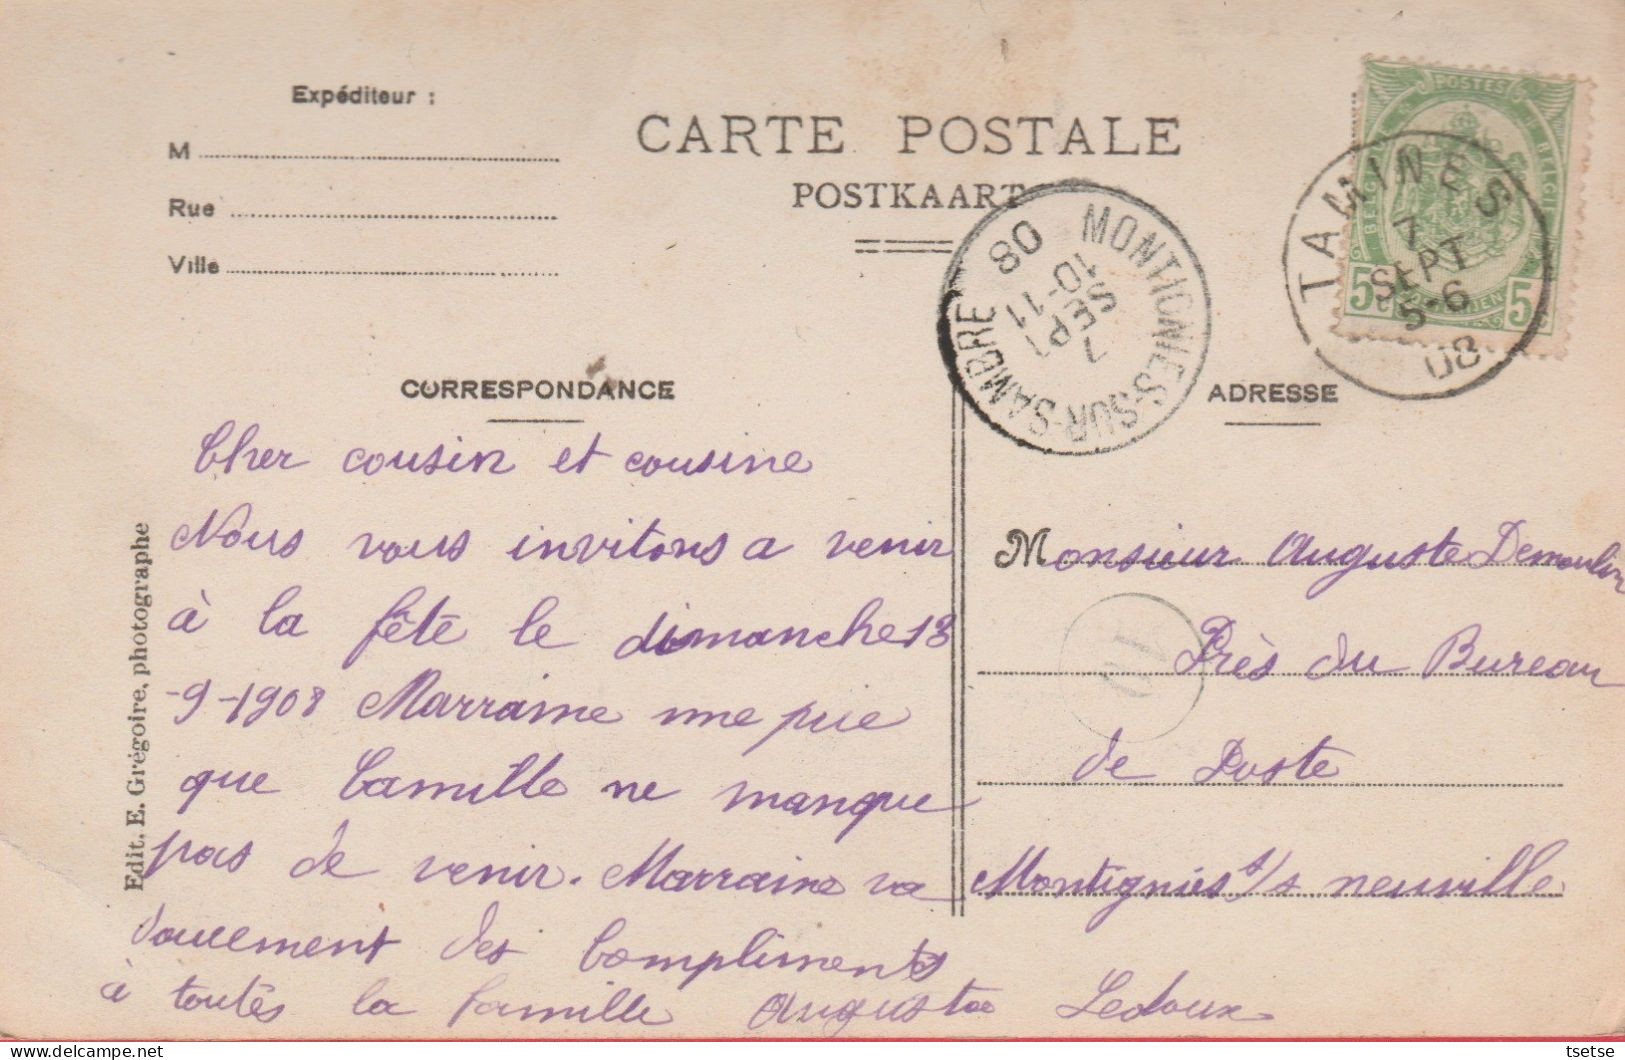 Expéditeur :
M
Rue
Ville
CARTE POSTALE
POSTKAART
POSTES
BELGIQUE BELGIË
5c 5c
TAMINES
7
SEPT
5-6
08
MONTIGNIES-SUR-SAMBRE
10-11
7
SEPT
08
CORRESPONDANCE
ADRESSE
Cher cousin et cousine
Nous vous invitons a venir
à la fête le dimanche 13
-9-1908 Marraine me prie
que Camille ne manque
pas de venir. Marraine va
doucement des Compliments
à toutes la famille Augusta Ledoux
Monsieur Auguste Demoulin
Près du Bureau
de Poste
Montignies s/s neuville
Edit. E. Grégoire, photographe
tsetse
delcampe.net